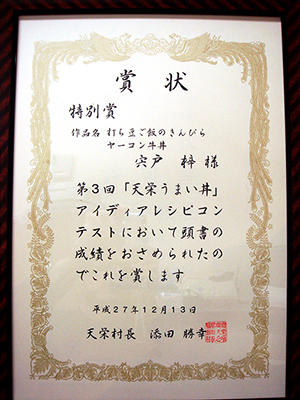 賞状
特別賞
作品名 打ち豆ご飯のきんぴら
ヤーコン牛丼
宍戸 梓 様
第3回「天栄うまい丼」
アイディアレシピコン
テストにおいて頭書の
成績をおさめられたの
でこれを賞します
平成27年12月13日
天栄村長 添田 勝幸